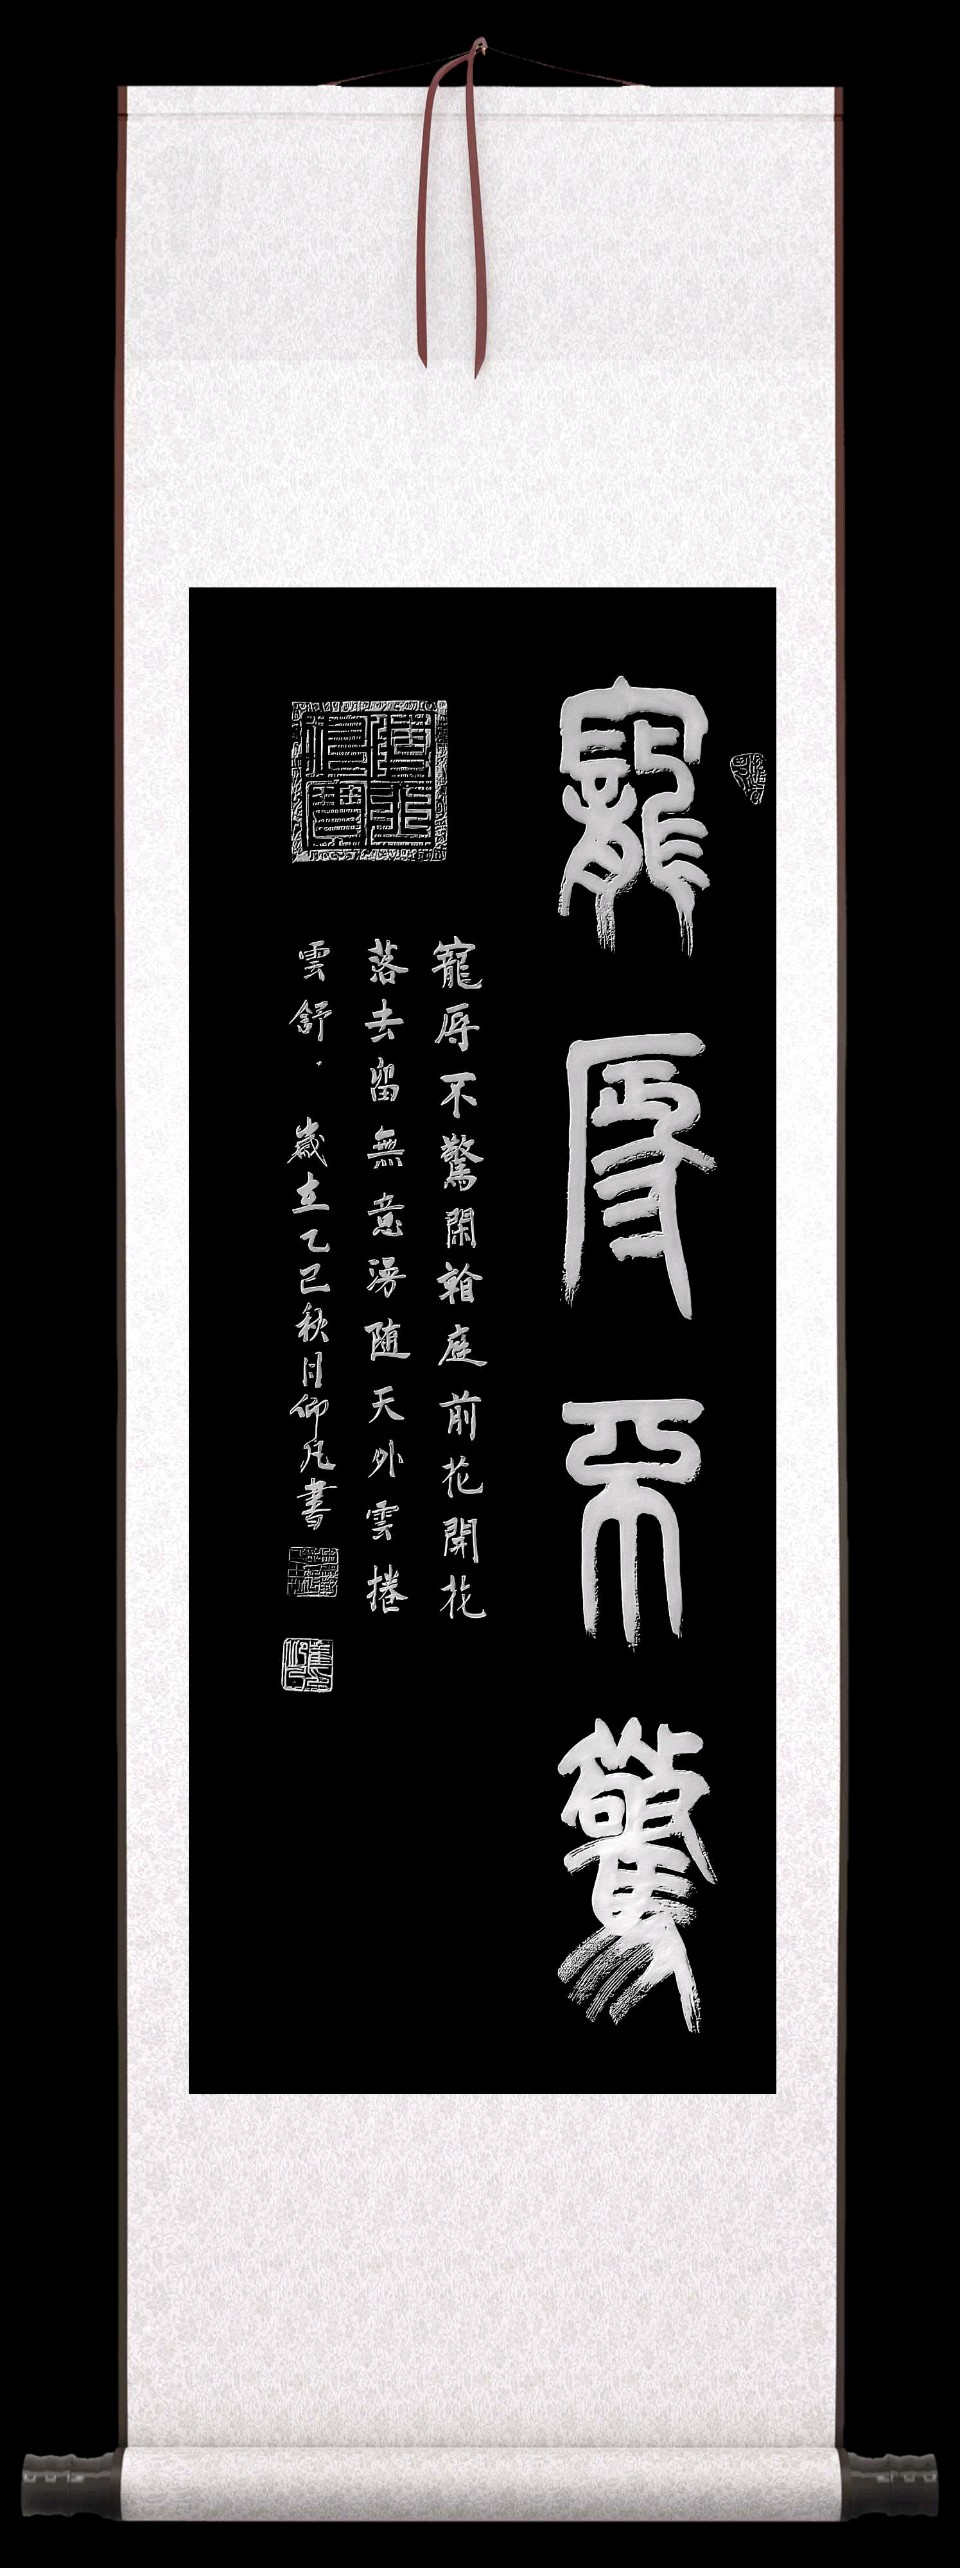 寵辱不驚
寵辱不驚閑看庭前花開花
落去留無意漫随天外雲捲
雲舒· 歲立乙巳秋月仰凡書